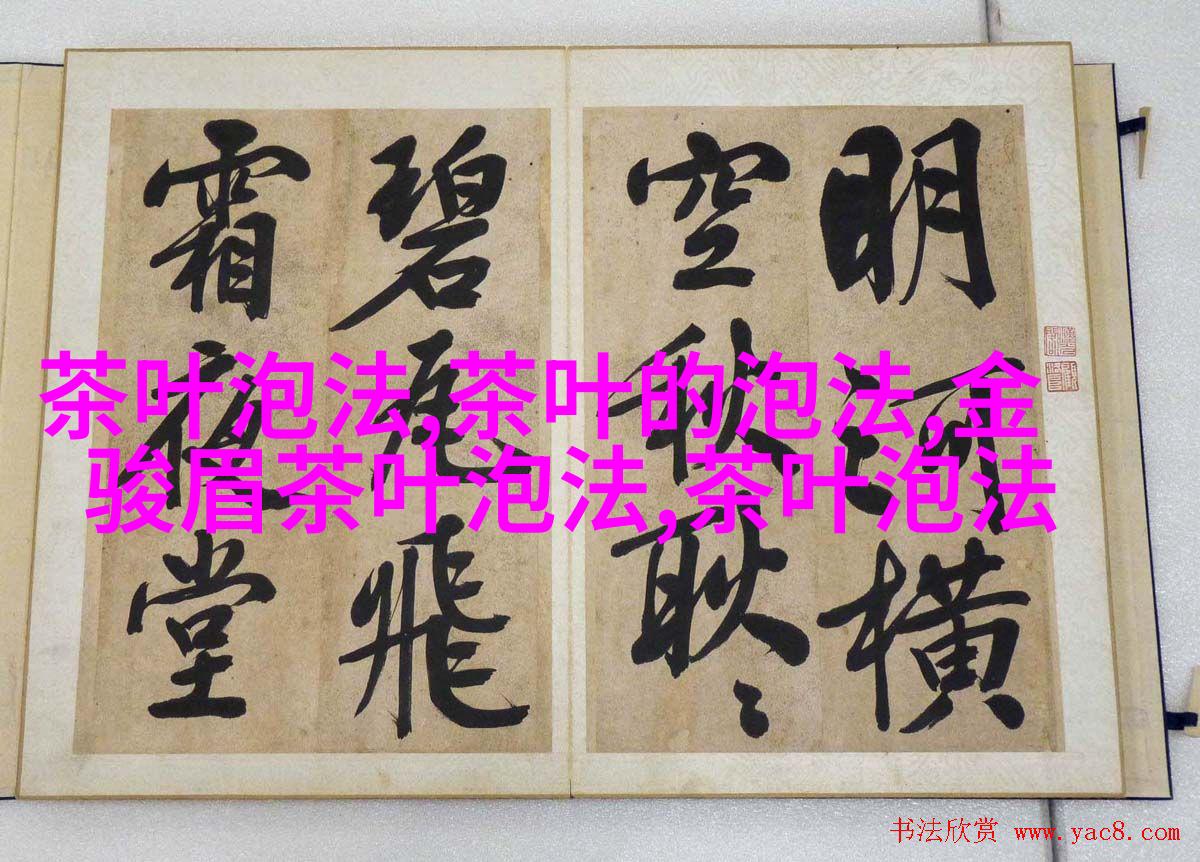 明河橫
空秋耿〻
碧瓦飛
霜夜堂
茶叶泡法,茶叶的泡法,金
骏眉茶叶泡法,茶叶泡法
书法欣赏 www.yac8.com